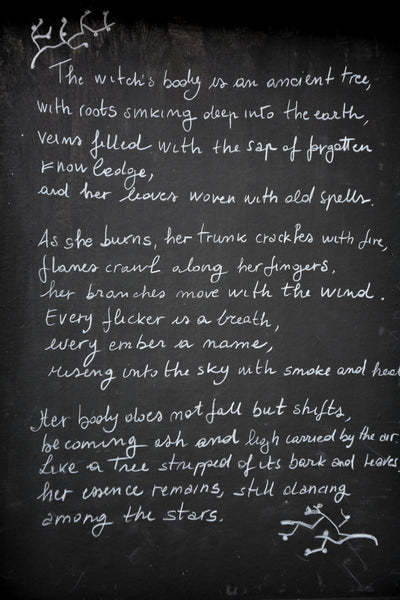 The witch's body is an ancient tree,
with roots sinking deep into the earth,
veins filled with the sap of forgotten
knowledge,
and her leaves woven with old spells.
As she burns, her trunk crackles with fire,
flames crawl along her fingers,
her branches move with the wind.
Every flicker is a breath,
every ember a name,
rising into the sky with smoke and heat
Her body does not fall but shifts,
becoming ash and ligh carried by the air.
Like a tree stripped of its bark and leaves,
her essence remains, still dancing
among the stars.